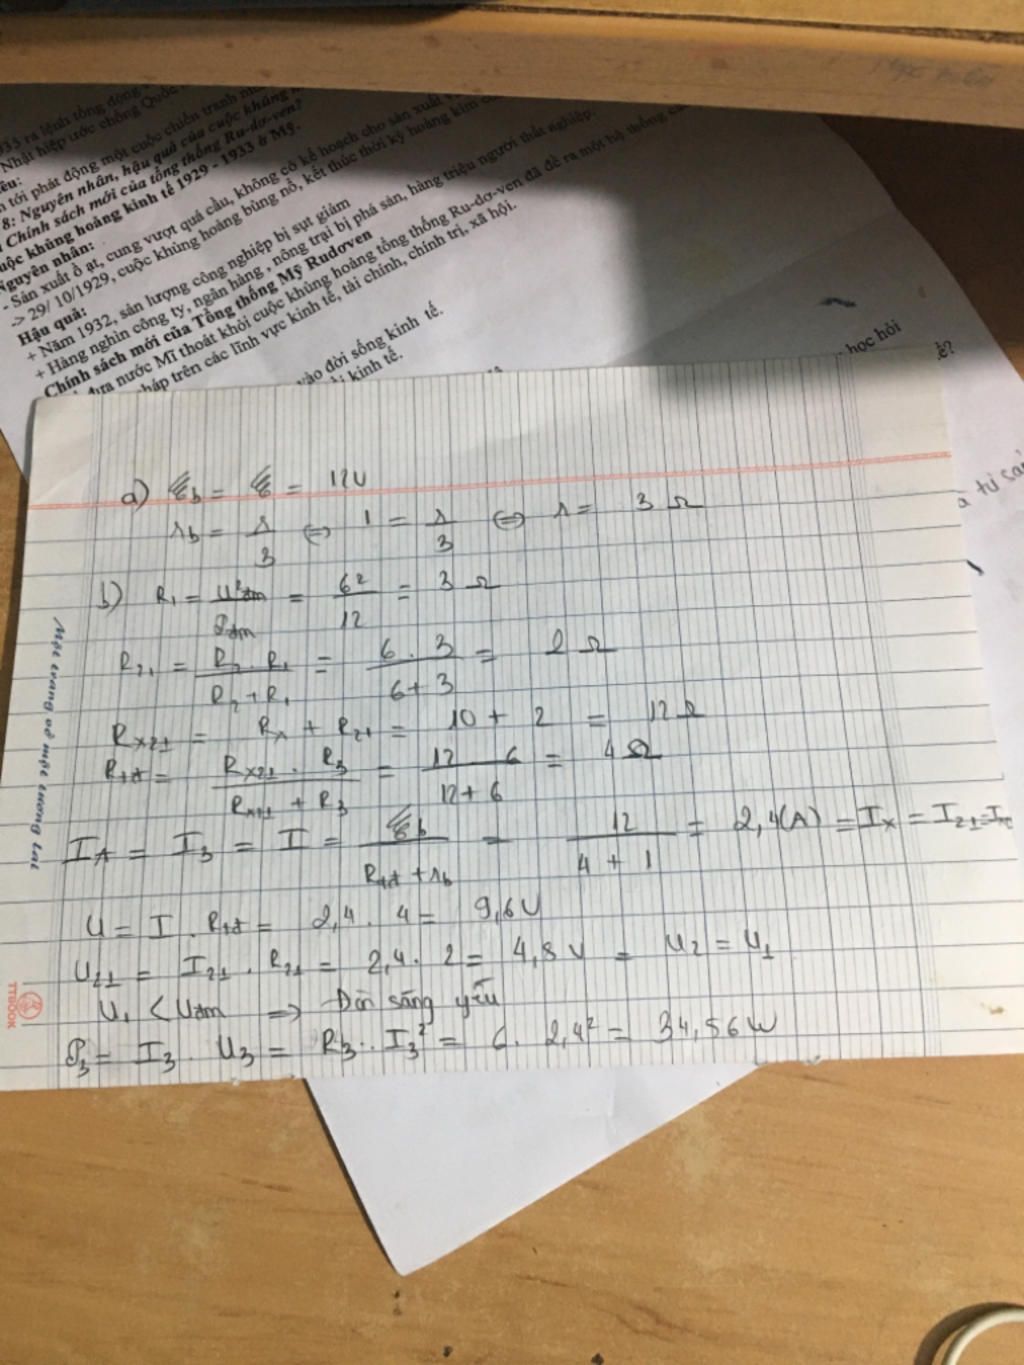 933 ra lệnh tổng động
Nhật hiệp ước chống Quốc
tới phát động một cuộc chiến tranh
8: Nguyên nhân, hậu quả của cuộc khủng
Chính sách mới của tổng thống Ru-dơ-ven?
cuộc khủng hoảng kinh tế 1929 - 1933 ở Mỹ.
Nguyên nhân:
- Sản xuất ồ ạt, cung vượt quá cầu, không có kế hoạch cho sản xuất
-> 29/ 10/1929, cuộc khủng hoảng bùng nổ, kết thúc thời kỳ hoàng kim
Hậu quả:
+ Năm 1932, sản lượng công nghiệp bị sụt giảm
+ Hàng nghìn công ty, ngân hàng, nông trại bị phá sản, hàng triệu người thất nghiệp.
Chính sách mới của Tổng thống Mỹ Rudoven
đưa nước Mĩ thoát khỏi cuộc khủng hoảng tổng thống Ru-dơ-ven đã đề ra một hệ thống
pháp trên các lĩnh vực kinh tế, tài chính, chính trị, xã hội.
vào đời sống kinh tế.
kinh tế.
học hỏi
a) ℰb = ℰ = 12V
rb = r/3 ⇔ 1 = r/3 ⇔ r = 3 Ω
b) R1 = U²đm/Pđm = 6²/12 = 3 Ω
R21 = R2 . R1/R2 + R1 = 6 . 3/6 + 3 = 2 Ω
Rx21 = Rx + R21 = 10 + 2 = 12 Ω
Rtđ = Rx21 . R3/Rx21 + R3 = 12 6/12 + 6 = 4 Ω
IA = I3 = I = ℰb/Rtđ + rb = 12/4 + 1 = 2,4(A) = Ix = I21 =
U = I . Rtđ = 2,4 . 4 = 9,6V
U21 = I21 . R21 = 2,4 . 2 = 4,8 V = U2 = U1
U1 < Uđm => Đèn sáng yếu
P3 = I3 . U3 = R3 . I3² = 6 . 2,4² = 34,56 W
Một trang vở một tương lai
TTBOOK